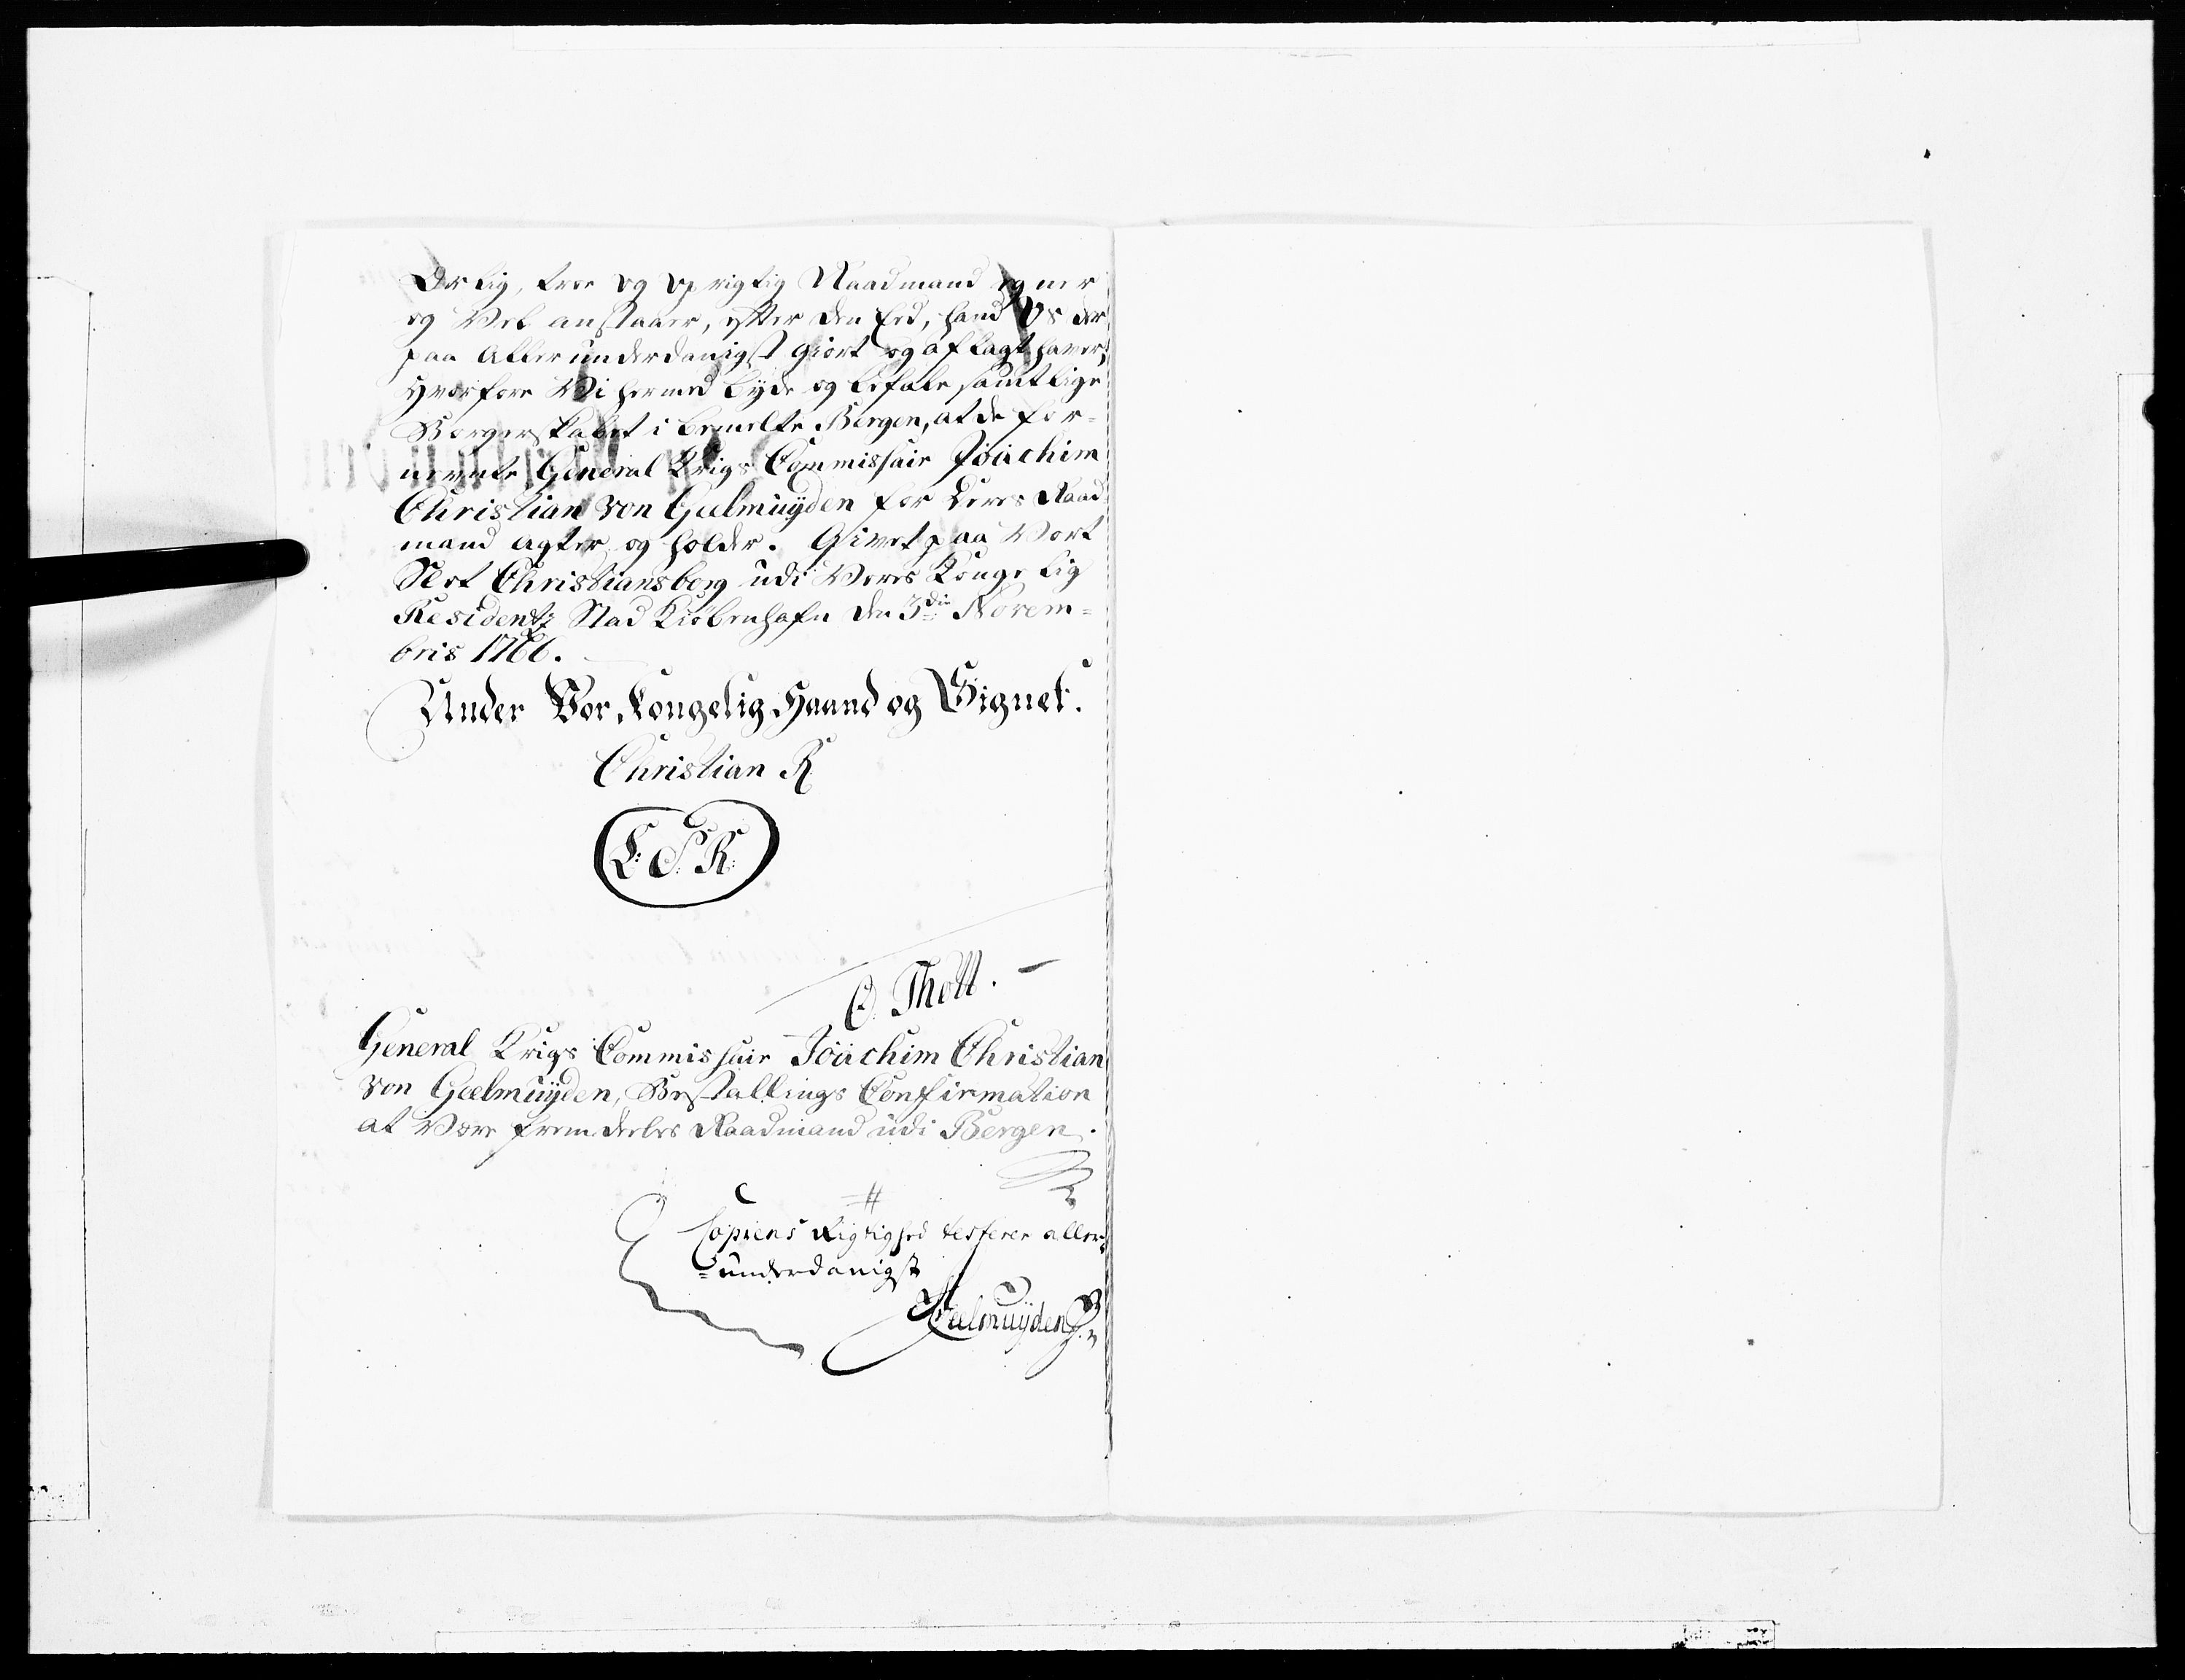 Ærlig, troe og oprigtig Raadmand egner
og Vel anstaaer, efter den Eed, hand Os der
paa Allerunderdanigst giort og aflagt haver;
Hvorfore Vi hermed byde og befale samtlige
Borgerskabet i bemelte Bergen, at de for-
nevnte General Krigs Commissair Joachim
Christian von Geelmuÿden for deres Raad
mand agter og holder. Givet paa Vort
Slot Christiansborg udi Vores Kongelig
Residentz Stad Kiøbenhafn den 3die Novem-
bris 1766.
Under Vor Kongelig Haand og Signet.
Christian R
L: S: R:
O. Thott.
General Krigs Commissair Joachim Christian
von Geelmuÿden, Bestallings Confirmation
at Være fremdeeles Raadmand udi Bergen.
Copiens Rigtighed testerer aller-
=underdanigst
Geelmuÿden